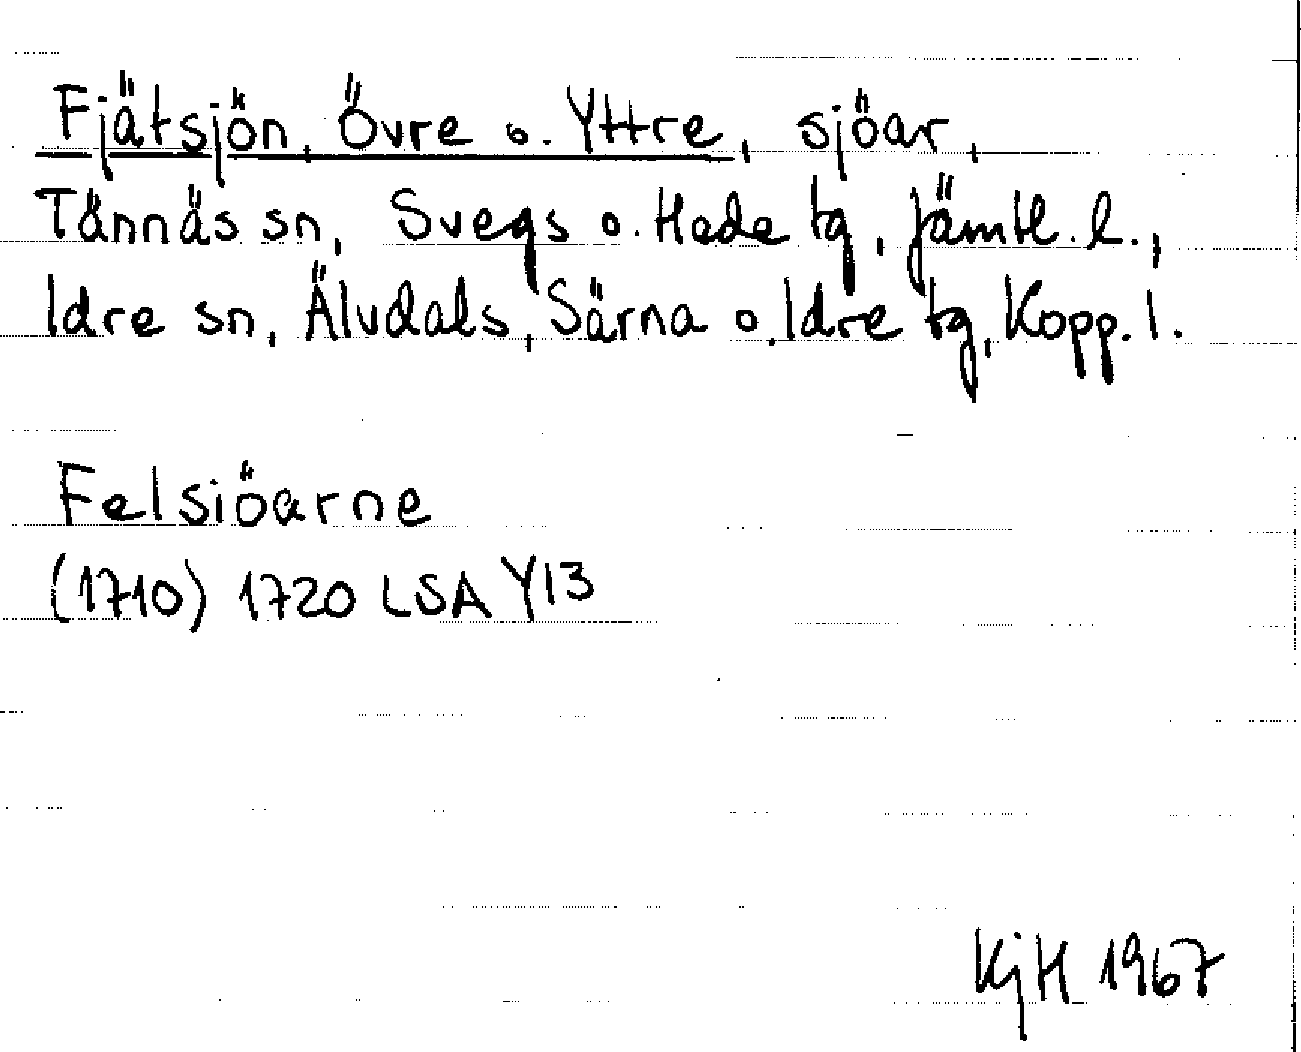 Fjätsjön, Övre o. Yttre, sjöar,
Tännäs sn, Svegs o. Hede tg, Jämtl. l.,
Idre sn, Älvdals, Särna o. Idre tg, Kopp. l.
Felsiöarne
(1710) 1720 LSA Y13
KjH 1967